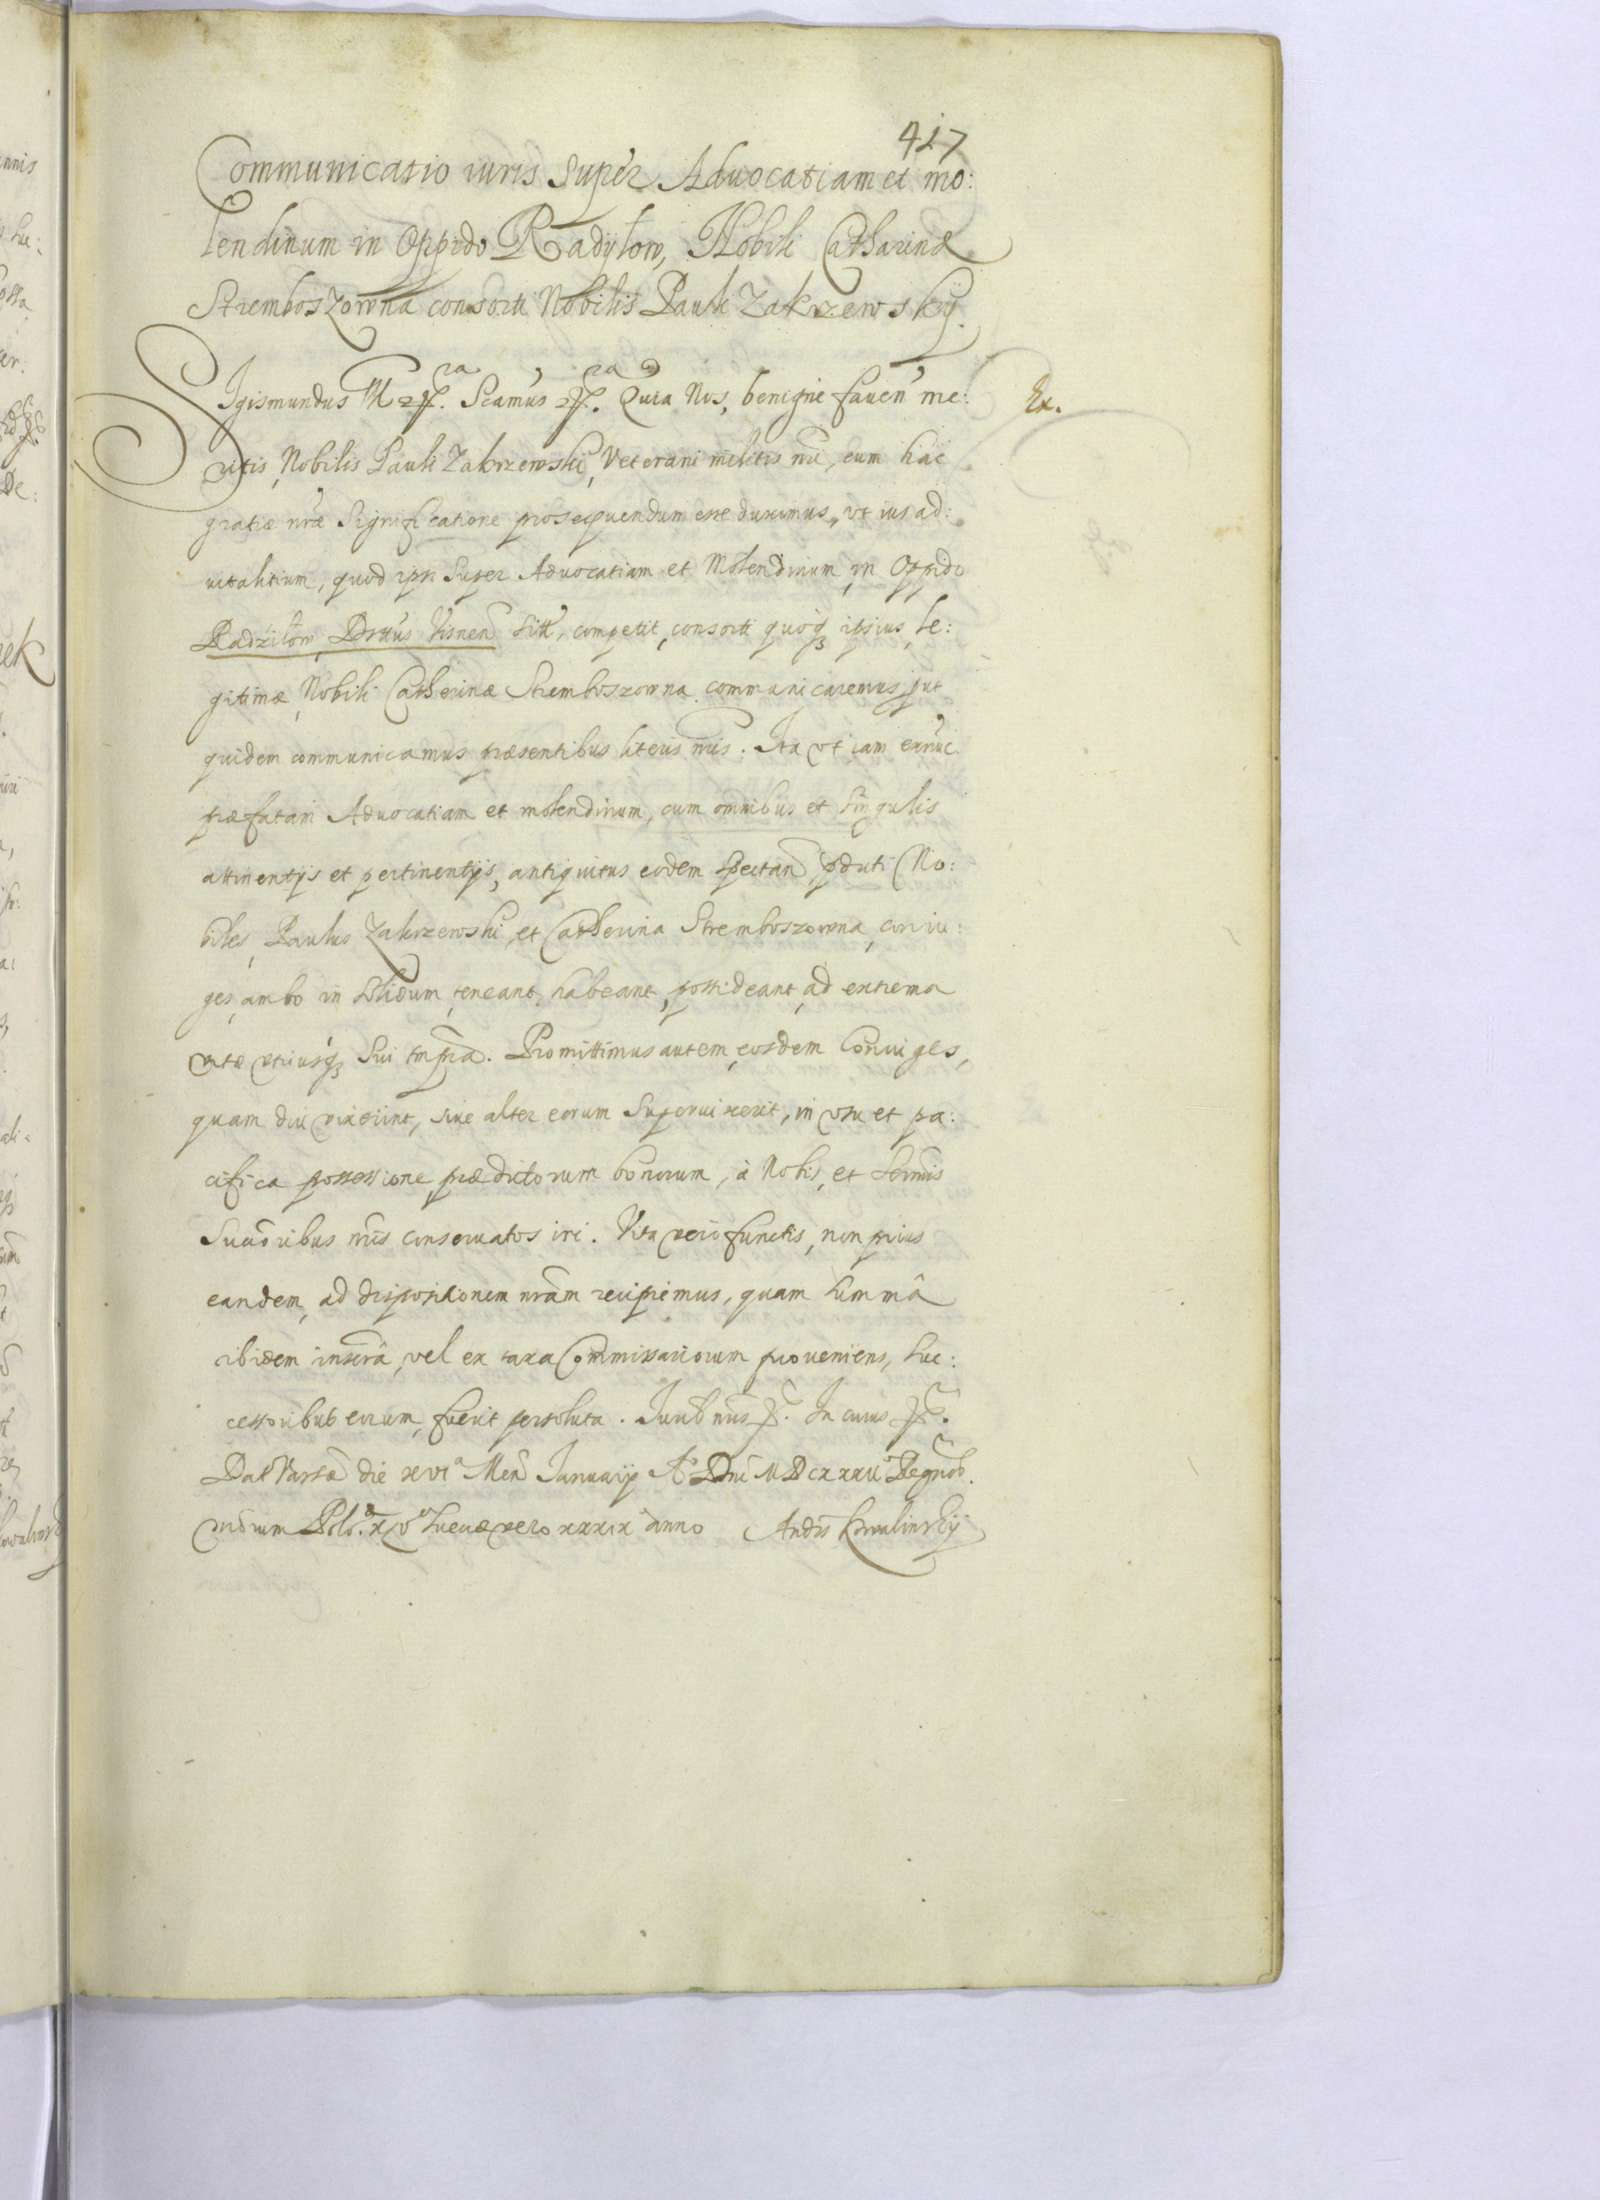 417
Communicatio iuris super Aduocatiam et mo:
lendinum in Oppido Radyłow, Nobili Catharinæ
Stremboszowna consorti Nobilis Pauli Zakrzewskij.
Sigismundus Scamus Quia Nos, benigne fauen me:
Ex.
ritis, Nobilis Pauli Zakrzewski, Veterani militis nri, eum hac
gratiæ nræ significatione prosequendum esse duximus, vt ius ad:
uitalitium, quod ipsi super Aduocatiam et Molendinum in Oppido
Radziłow, Disttus Visnen sitt, competit, consorti quoq ipsius le:
gitimæ, Nobili Catherinæ Stremboszowna communicaremus, vt
quidem communicamus præsentibus literis nris. Ita vt iam exnunc
præfatam Aduocatiam et molendinum, cum omnibus et singulis
attinentijs et pertinentijs, antiquitus eodem spectan, pdicti No:
biles, Paulus Zakrzewski, et Catherina Stremboszowna, coniu:
ges, ambo in solidum, teneant, habeant, possideant, ad extrema
vitæ vtriusq sui tmpra. Promittimus autem, eosdem Coniuges,
quam diu vixerint, siue alter eorum superuixerit, in vsu et pa:
cifica possessione prædictorum bonorum, à Nobis, et Sermis
Succoribus nris conseruatos iri. Vita vero functis, non prius
eandem, ad dispositionem nram recipiemus, quam summâ
ibidem inscrâ, vel ex taxa Commissariorum proueniens, suc:
cessoribus eorum, fuerit persoluta. Iurib nris In cuius
Dat Varsæ die xviª Men Januarij Aº Dni MDCXXXII Regnor
nrorum Polo. xlvº Sueciæ vero xxxix anno Andrs Kowalinskij